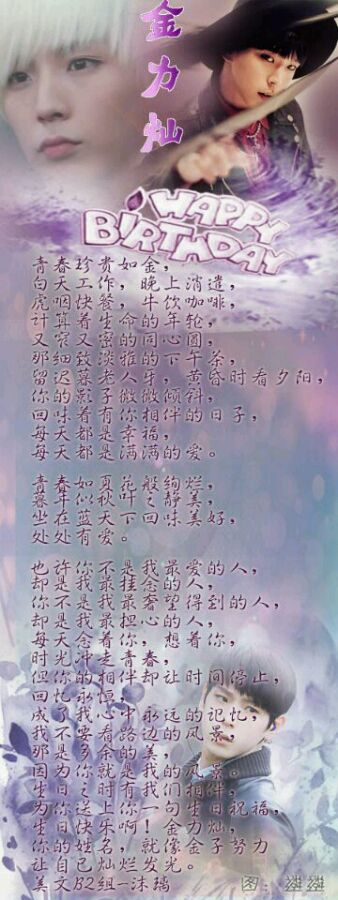 金力灿
HAPPY
BIRTHDAY
青春珍贵如金，
白天工作，晚上消遣，
虎咽快餐，牛饮咖啡，
计算着生命的年轮，
又窄又密的同心圆，
那细致淡雅的下午茶，
留迟暮老人生，黄昏时看夕阳，
你的影子微微倾斜，
回味着有你相伴的日子，
每天都是幸福，
每天都是满满的爱。
青春如夏花般绚烂，
暮年似秋叶之静美，
坐在蓝天下回味美好，
处处有爱。
也许你不是我最爱的人，
却是我最挂念的人，
你不是我最奢望得到的人，
却是我最担心的人，
每天念着你，想着你，
时光冲走青春，
但你的相伴却让时间停止，
回忆永恒，
成了我心中永远的记忆，
我不看路边的风景，
那是多余的美，
因为你就是我的风景。
生日之时有我们相伴，
为你送上你一句生日祝福，
生日快乐啊！金力灿，
你的姓名，就像金子努力
让自己灿烂发光。
美文B2组-沫璃
图：